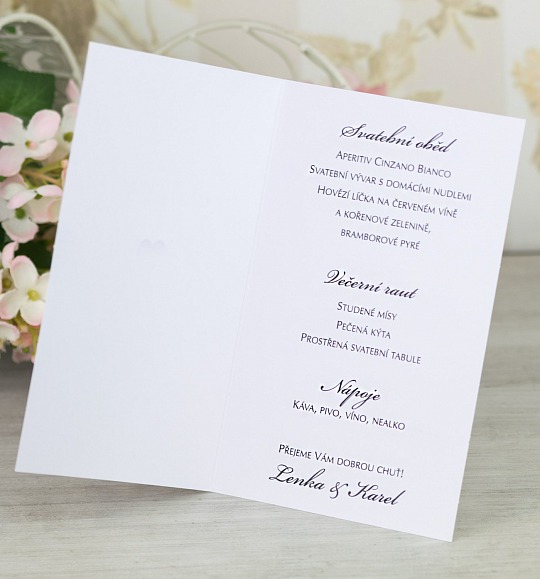 Svatební oběd
Aperitiv Cinzano Bianco
Svatební vývar s domácími nudlemi
Hovězí líčka na červeném víně
a kořenové zelenině,
bramborové pyré
Večerní raut
Studené mísy
Pečená kýta
Prostřená svatební tabule
Nápoje
Káva, pivo, víno, nealko
Přejeme Vám dobrou chuť!
Lenka & Karel